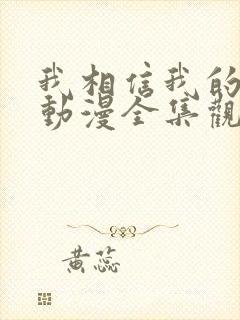 我相信我的
動漫全集觀
黃蕊